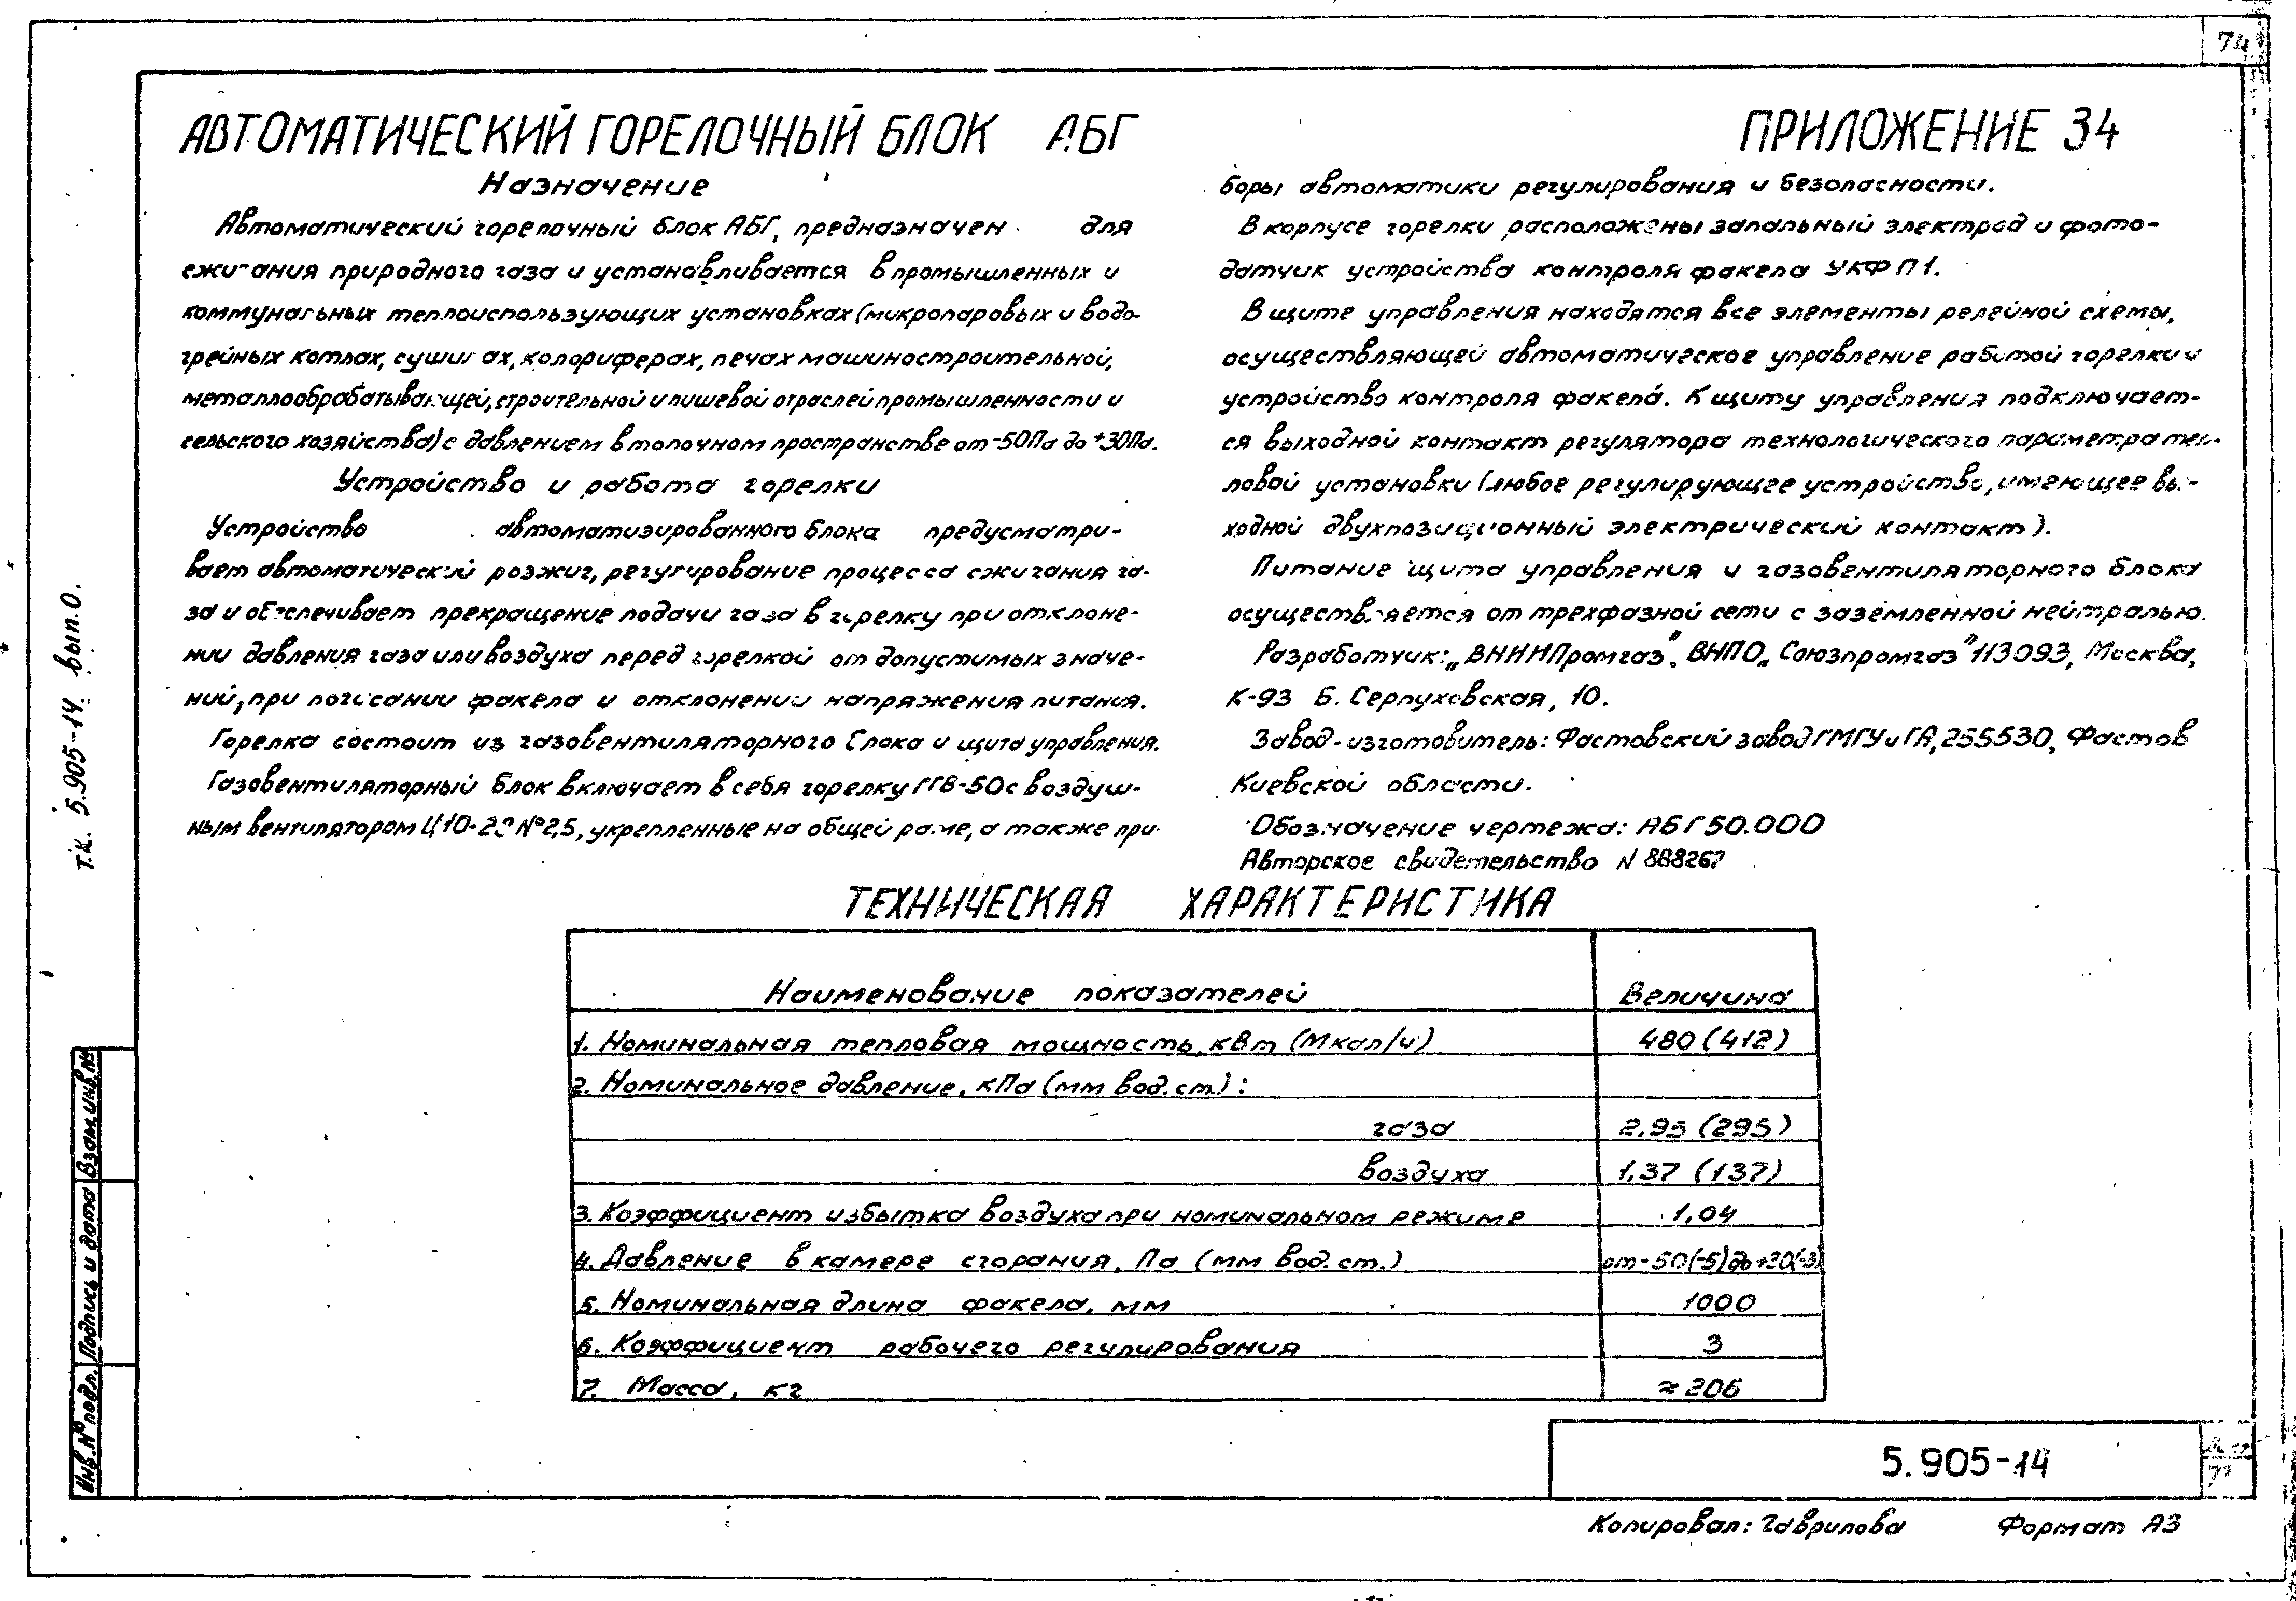 74
АВТОМАТИЧЕСКИЙ ГОРЕЛОЧНЫЙ БЛОК АБГ
ПРИЛОЖЕНИЕ 34
Назначение
Автоматический горелочный блок АБГ, предназначен для
сжигания природного газа и устанавливается в промышленных и
коммунальных теплоиспользующих установках (микропаровых и водо-
грейных котлах, сушилах, колориферах, печах машиностроительной,
металлообрабатывающей, строительной и пишевой отраслей промышленности и
сельского хозяйства) с давлением в топочном пространстве от -50Па до +30Па.
Устройство и работа горелки
Устройство автоматизированного блока предусматри-
вает автоматический розжиг, регулирование процесса сжигания га-
за и обеспечивает прекращение подачи газа в горелку при отклоне-
нии давления газа или воздуха перед горелкой от допустимых значе-
ний, при погасании факела и отклонении напряжения питания.
Горелка состоит из газовентиляторного блока и щита управления.
Газовентиляторный блок включает в себя горелку ГГВ-50 с воздуш-
ным вентилятором Ц10-28 №2,5, укрепленные на общей раме, а также при-
боры автоматики регулирования и безопасности.
В корпусе горелки расположены запальный электрод и фото-
датчик устройства контроля факела УКФ П1.
В щите управления находятся все элементы релейной схемы,
осуществляющей автоматическое управление работой горелки и
устройство контроля факела. К щиту управления подключает-
ся выходной контакт регулятора технологического параметра теп-
ловой установки (любое регулирующее устройство, имеющее вы-
ходной двухпозиционный электрический контакт).
Питание щита управления и газовентиляторного блока
осуществляется от трехфазной сети с заземленной нейтралью.
Разработчик: „ВНИИПромгаз", ВНПО „Союзпромгаз" 113093, Москва,
К-93 Б. Серпуховская, 10.
Завод-изготовитель: Фастовский завод ГМГУ и ГА, 255530, Фастов
Киевской области.
Обозначение чертежа: АБГ 50.000
Авторское свидетельство N 888267
ТЕХНИЧЕСКАЯ ХАРАКТЕРИСТИКА
Наименование показателей Величина
1. Номинальная тепловая мощность, кВт (Мкал/ч) 480 (412)
2. Номинальное давление, кПа (мм вод. ст.):
газа 2,95 (295)
воздуха 1,37 (137)
3. Коэффициент избытка воздуха при номинальном режиме 1,04
4. Давление в камере сгорания, Па (мм вод. ст.) от -50(-5) до
5. Номинальная длина факела, мм 1000
6. Коэффициент рабочего регулирования 3
7. Масса, кг ≈ 206
5.905-14
Копировал: Гаврилова Формат А3
Т.К. 5.905-14 вып.0.
Взам. инв. №
Подпись и дата
Инв. № подл.